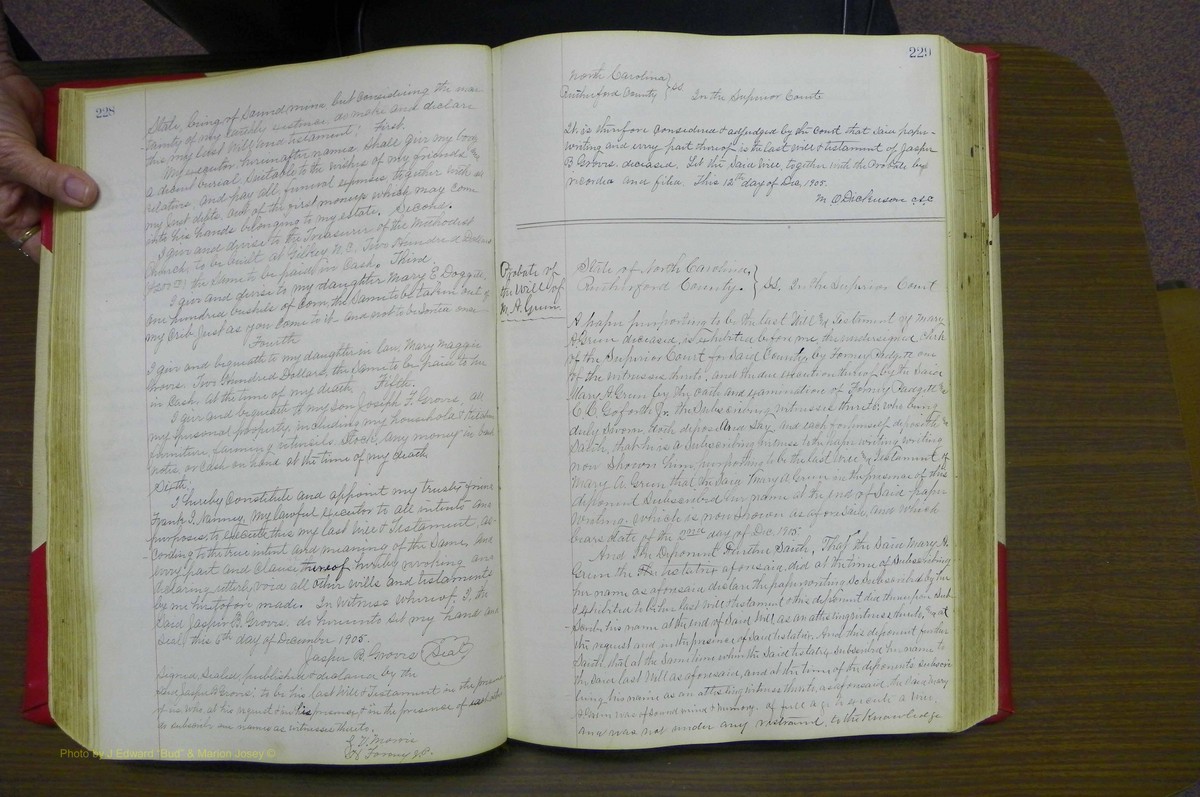 228
State, being of Sound mind but considering the uncer
tainty of my earthly existence, do make and declare
this my last Will and testament: First.
My executor hereinafter named shall give my body
a decent burial suitable to the wishes of my friends &
relatives, and pay all funeral expenses, together with all
my just debts, out of the first moneys which may come
into his hands belonging to my estate. Second.
I give and devise to the Treasurer of the Methodist
Church to be built at Gilkey N.C. Two Hundred Dollars
the same to be paid in Cash. Third.
I give and devise to my daughter Mary E. Doggett
one hundred bushels of Corn, the Same to be taken out of
my Crib Just as you Come to it and not to be Sorted over
Fourth
I give and bequeath to my daughter in law, Mary Maggie
Grovs. Two Hundred Dollars, the Same to be paid to her
in Cash. at the time of my death. Fifth.
I give and bequeath to my son Joseph F. Grovs, all
my personal property, including my household & Kitchen
furniture, farming utensils, Stock, any money in bank
notes or Cash on hand at the time of my death
Sixth.
I hereby Constitute and appoint my trusty friend
Frank I. Nanney, My lawful executor to all intents and
purposes, to execute this my last Will & Testament, ac-
cording to the true intent and meaning of the Same, and
every part and Clause thereof hereby revoking and
declaring utterly void all other wills and testaments
by me heretofore made. In Witness whereof I, the
said Jasper B. Grovs. do hereunto set my hand and
seal, this 6th day of December 1905.
Jasper B. Grovs (Seal)
Signed, Sealed, published & declared by the
said Jasper B Grovs, to be his last Will & Testament in the presence
of us who at his request & in his presence & in the presence of each other
do subscribe our names as witnesses thereto.
229
North Carolina
Rutherford County } SS In the Superior Court
It is therefore considered & adjudged by the Court that Said paper-
writing and every part thereof is the last Will & testament of Jasper
B. Grovs. deceased. Let the Said Will, together with the Probate be
recorded and filed. This 12th day of Dec, 1905.
M. O. Dickerson C.S.C.
Probate of
the Will of
M. A. Green
State of North Carolina,
Rutherford County. } SS. In the Superior Court
A paper purporting to be the last Will & Testament of Mary
A Green deceased, is exhibited before me the undersigned Clerk
of the Superior Court for Said County, by Forney Padgett one
of the witnesses thereto, and the due execution thereof by the Said
Mary A. Green by the oath and examination of Forney Padgett &
C. C. Goforth Jr. the Subscribing witnesses thereto; who being
duly Sworn, doth depose and Say, and each for himself deposeth &
Saith, that he is a Subscribing witness to the paper writing writing
now Shown him, purporting to be the last Will & Testament of
Mary A. Green that the Said Mary A Green in the presence of this
deponent Subscribed her name at the end of Said paper
Writing. which is now Shown as aforesaid, and which
bears date of the day of Dec, 1905.
And the Deponent Further Saith, That the Said Mary A.
Green the testatrix aforesaid, did at the time of Subscribing
her name as aforesaid, declare the paper writing So Subscribed by her
& exhibited to be her last Will & testament & this deponent did thereupon Sub-
scribe his name at the end of Said Will, as an attesting witness thereto, & at
the request and in the presence of Said testator. And this deponent further
Saith, that at the Same time when the Said testator Subscribed her name to
the Said last Will as aforesaid, and at the time of the deponents subscri
bing his name as an attesting witness thereto, as aforesaid, the Said Mary
A Green was of Sound mind & memory, of full age to execute a Will,
and was not under any restraint, to the Knowledge
Photo by J Edward "Bud" & Marion Josey ©